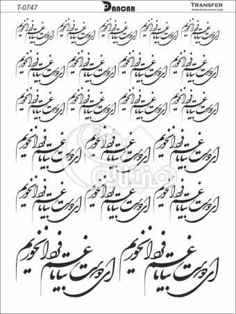 T-0747 DANCAR TRANSFER
ای دوست بیا تا غم فردا نخوریم ای دوست بیا تا غم فردا نخوریم ای دوست بیا تا غم فردا نخوریم ای دوست بیا تا غم فردا نخوریم ای دوست بیا تا غم فردا نخوریم
ای دوست بیا تا غم فردا نخوریم ای دوست بیا تا غم فردا نخوریم ای دوست بیا تا غم فردا نخوریم ای دوست بیا تا غم فردا نخوریم
ای دوست بیا تا غم فردا نخوریم ای دوست بیا تا غم فردا نخوریم ای دوست بیا تا غم فردا نخوریم ای دوست بیا تا غم فردا نخوریم
ای دوست بیا تا غم فردا نخوریم ای دوست بیا تا غم فردا نخوریم ای دوست بیا تا غم فردا نخوریم
ای دوست بیا تا غم فردا نخوریم ای دوست بیا تا غم فردا نخوریم ای دوست بیا تا غم فردا نخوریم
ای دوست بیا تا غم فردا نخوریم ای دوست بیا تا غم فردا نخوریم